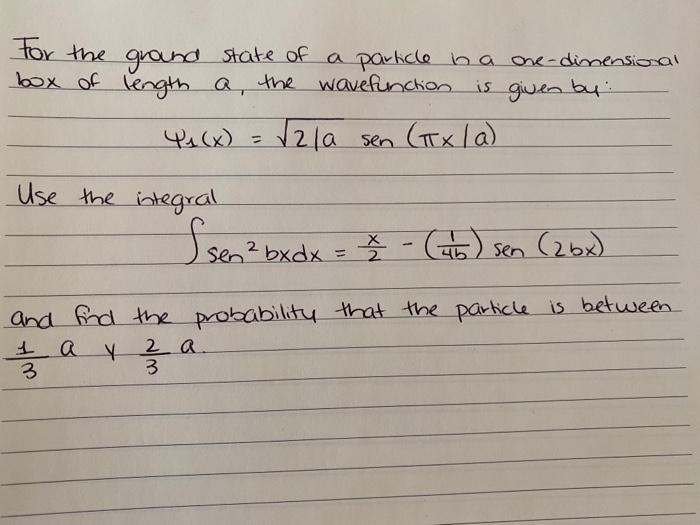 For the ground state of a particle in a one-dimensional
box of length a, the wavefunction is given by:
Ψ₁(x) = √2/a sen (πx/a)
Use the integral
∫sen² bxdx = x/2 - (1/4b) sen (2bx)
and find the probability that the particle is between
1/3 a y 2/3 a.